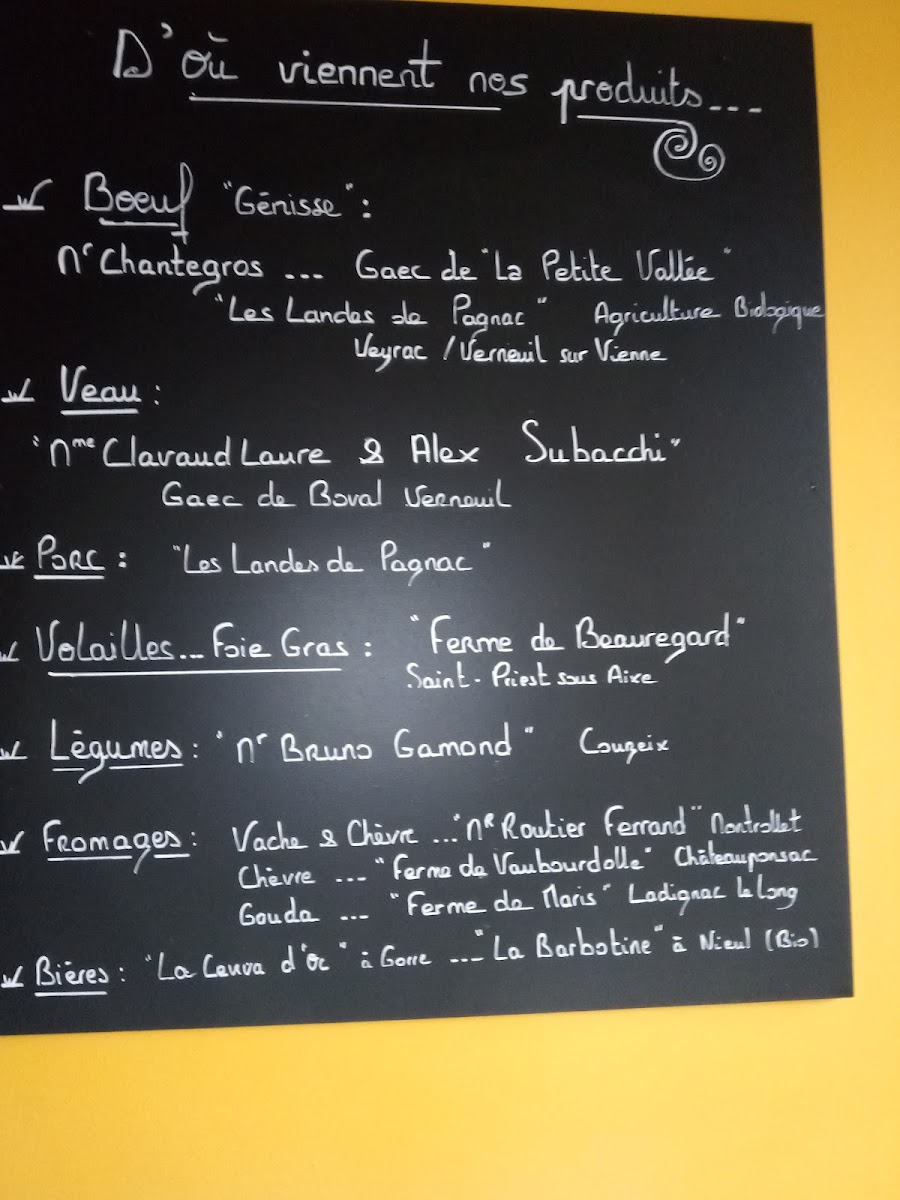 D'où viennent nos produits...
Boeuf "Génisse":
Mr Chantegros ... Gaec de "La Petite Vallée"
"Les Landes de Pagnac" Agriculture Biologique
Veyrac / Verneuil sur Vienne
Veau:
"Mme Clavaud Laure & Alex Subacchi"
Gaec de Boval Verneuil
Porc: "Les Landes de Pagnac"
Volailles... Foie Gras: "Ferme de Beauregard"
Saint-Priest sous Aixe
Légumes: "Mr Bruno Gamond" Couzeix
Fromages: Vache & Chèvre ... "Mr Routier Ferrand" Montrollet
Chèvre ... "Ferme de Vaubourdolle" Châteauponsac
Gouda ... "Ferme de Maris" Ladignac le Long
Bières: "La Cuuva d'Oc" à Gorre ... "La Barbotine" à Nieul (Bio)